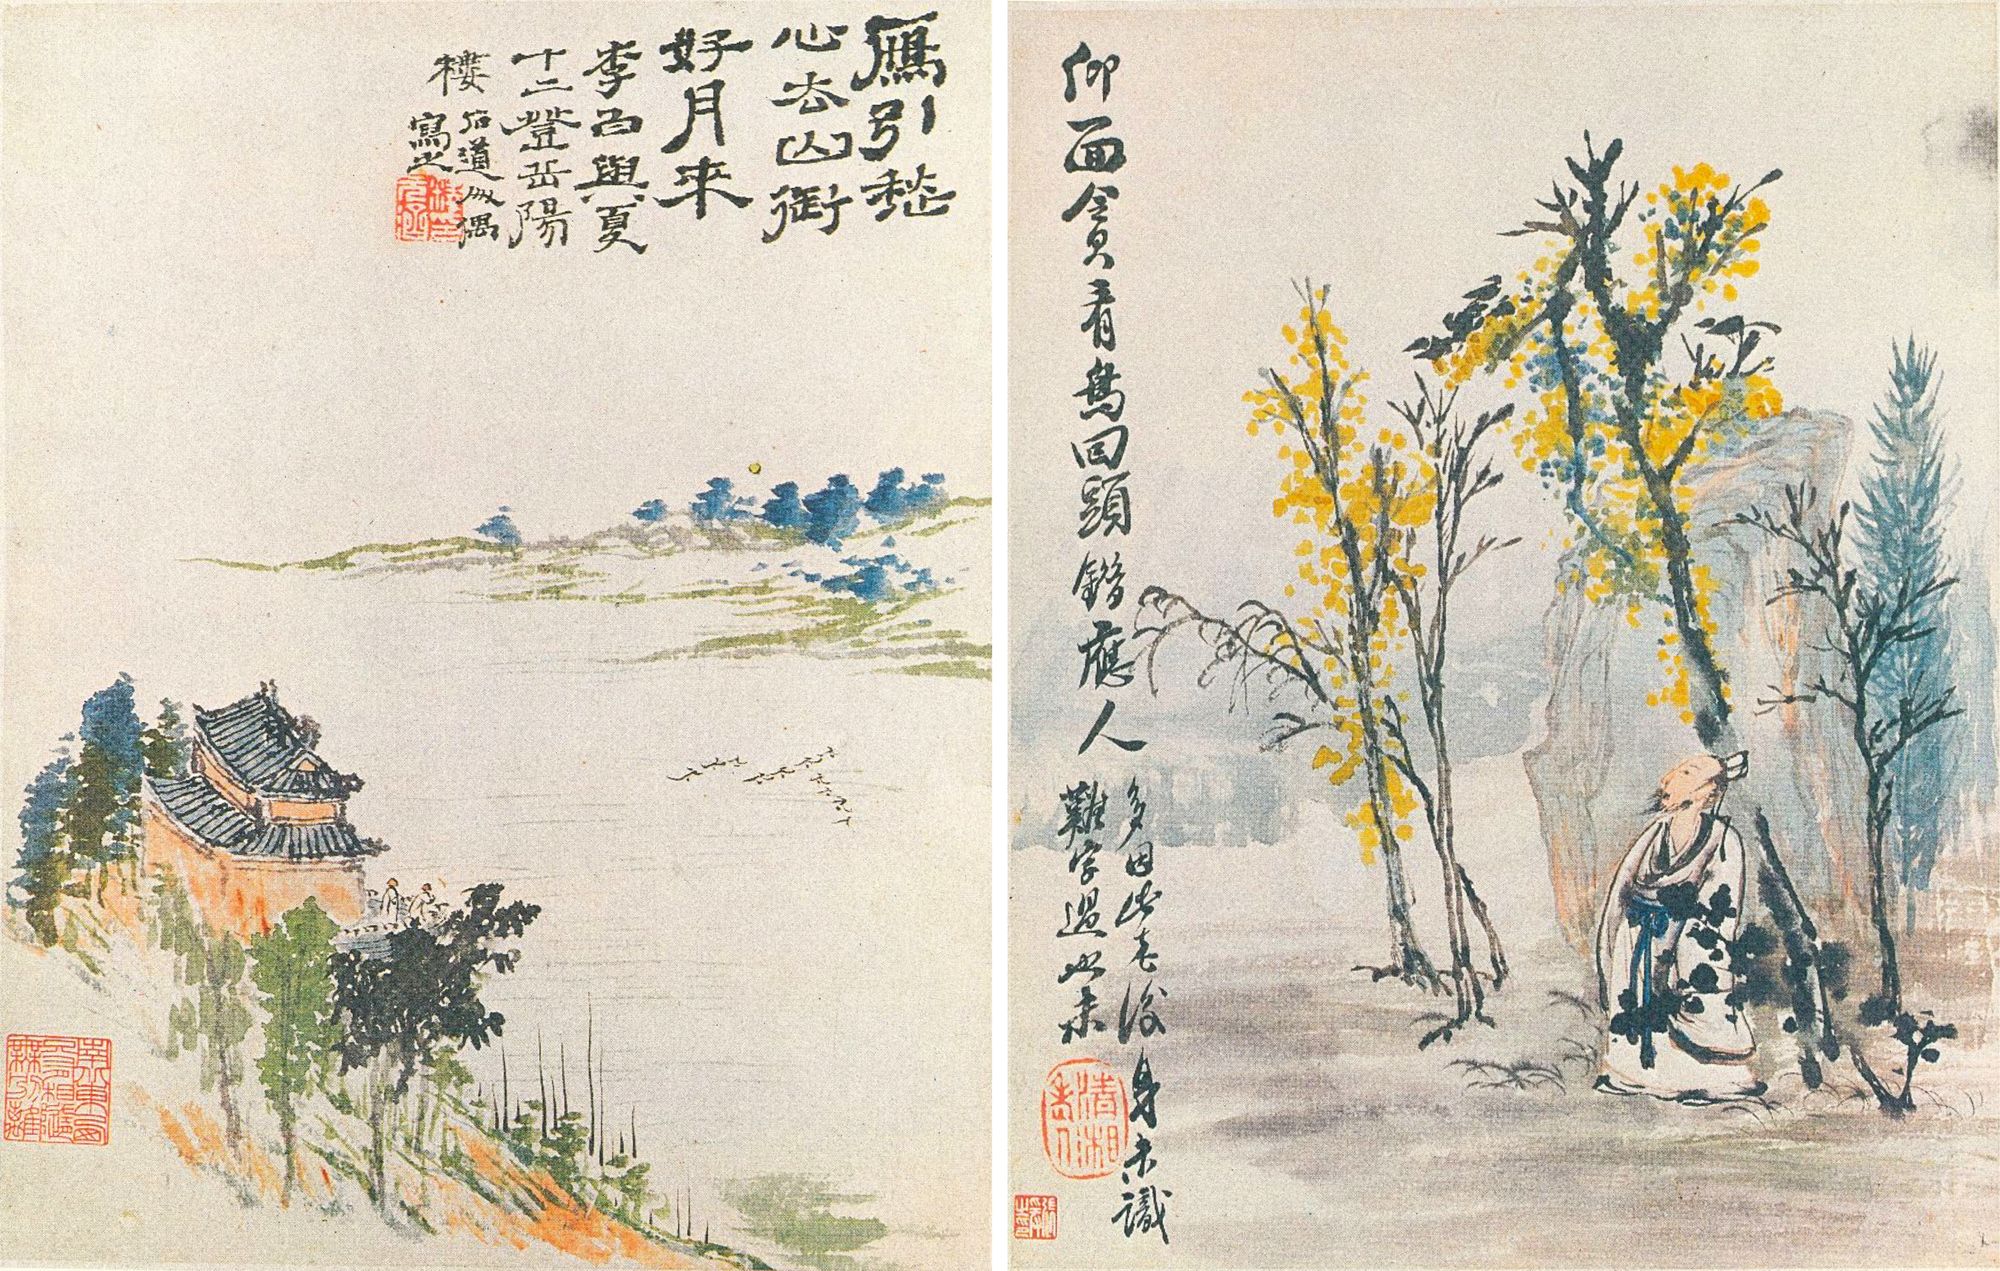 鴈引愁
心去山銜
好月來
李白與夏
十二登岳陽
樓 石道人偶
寫之
仰面貪看鳥回頭錯應人
多因此老後身未識
難字過也未
清湘老人